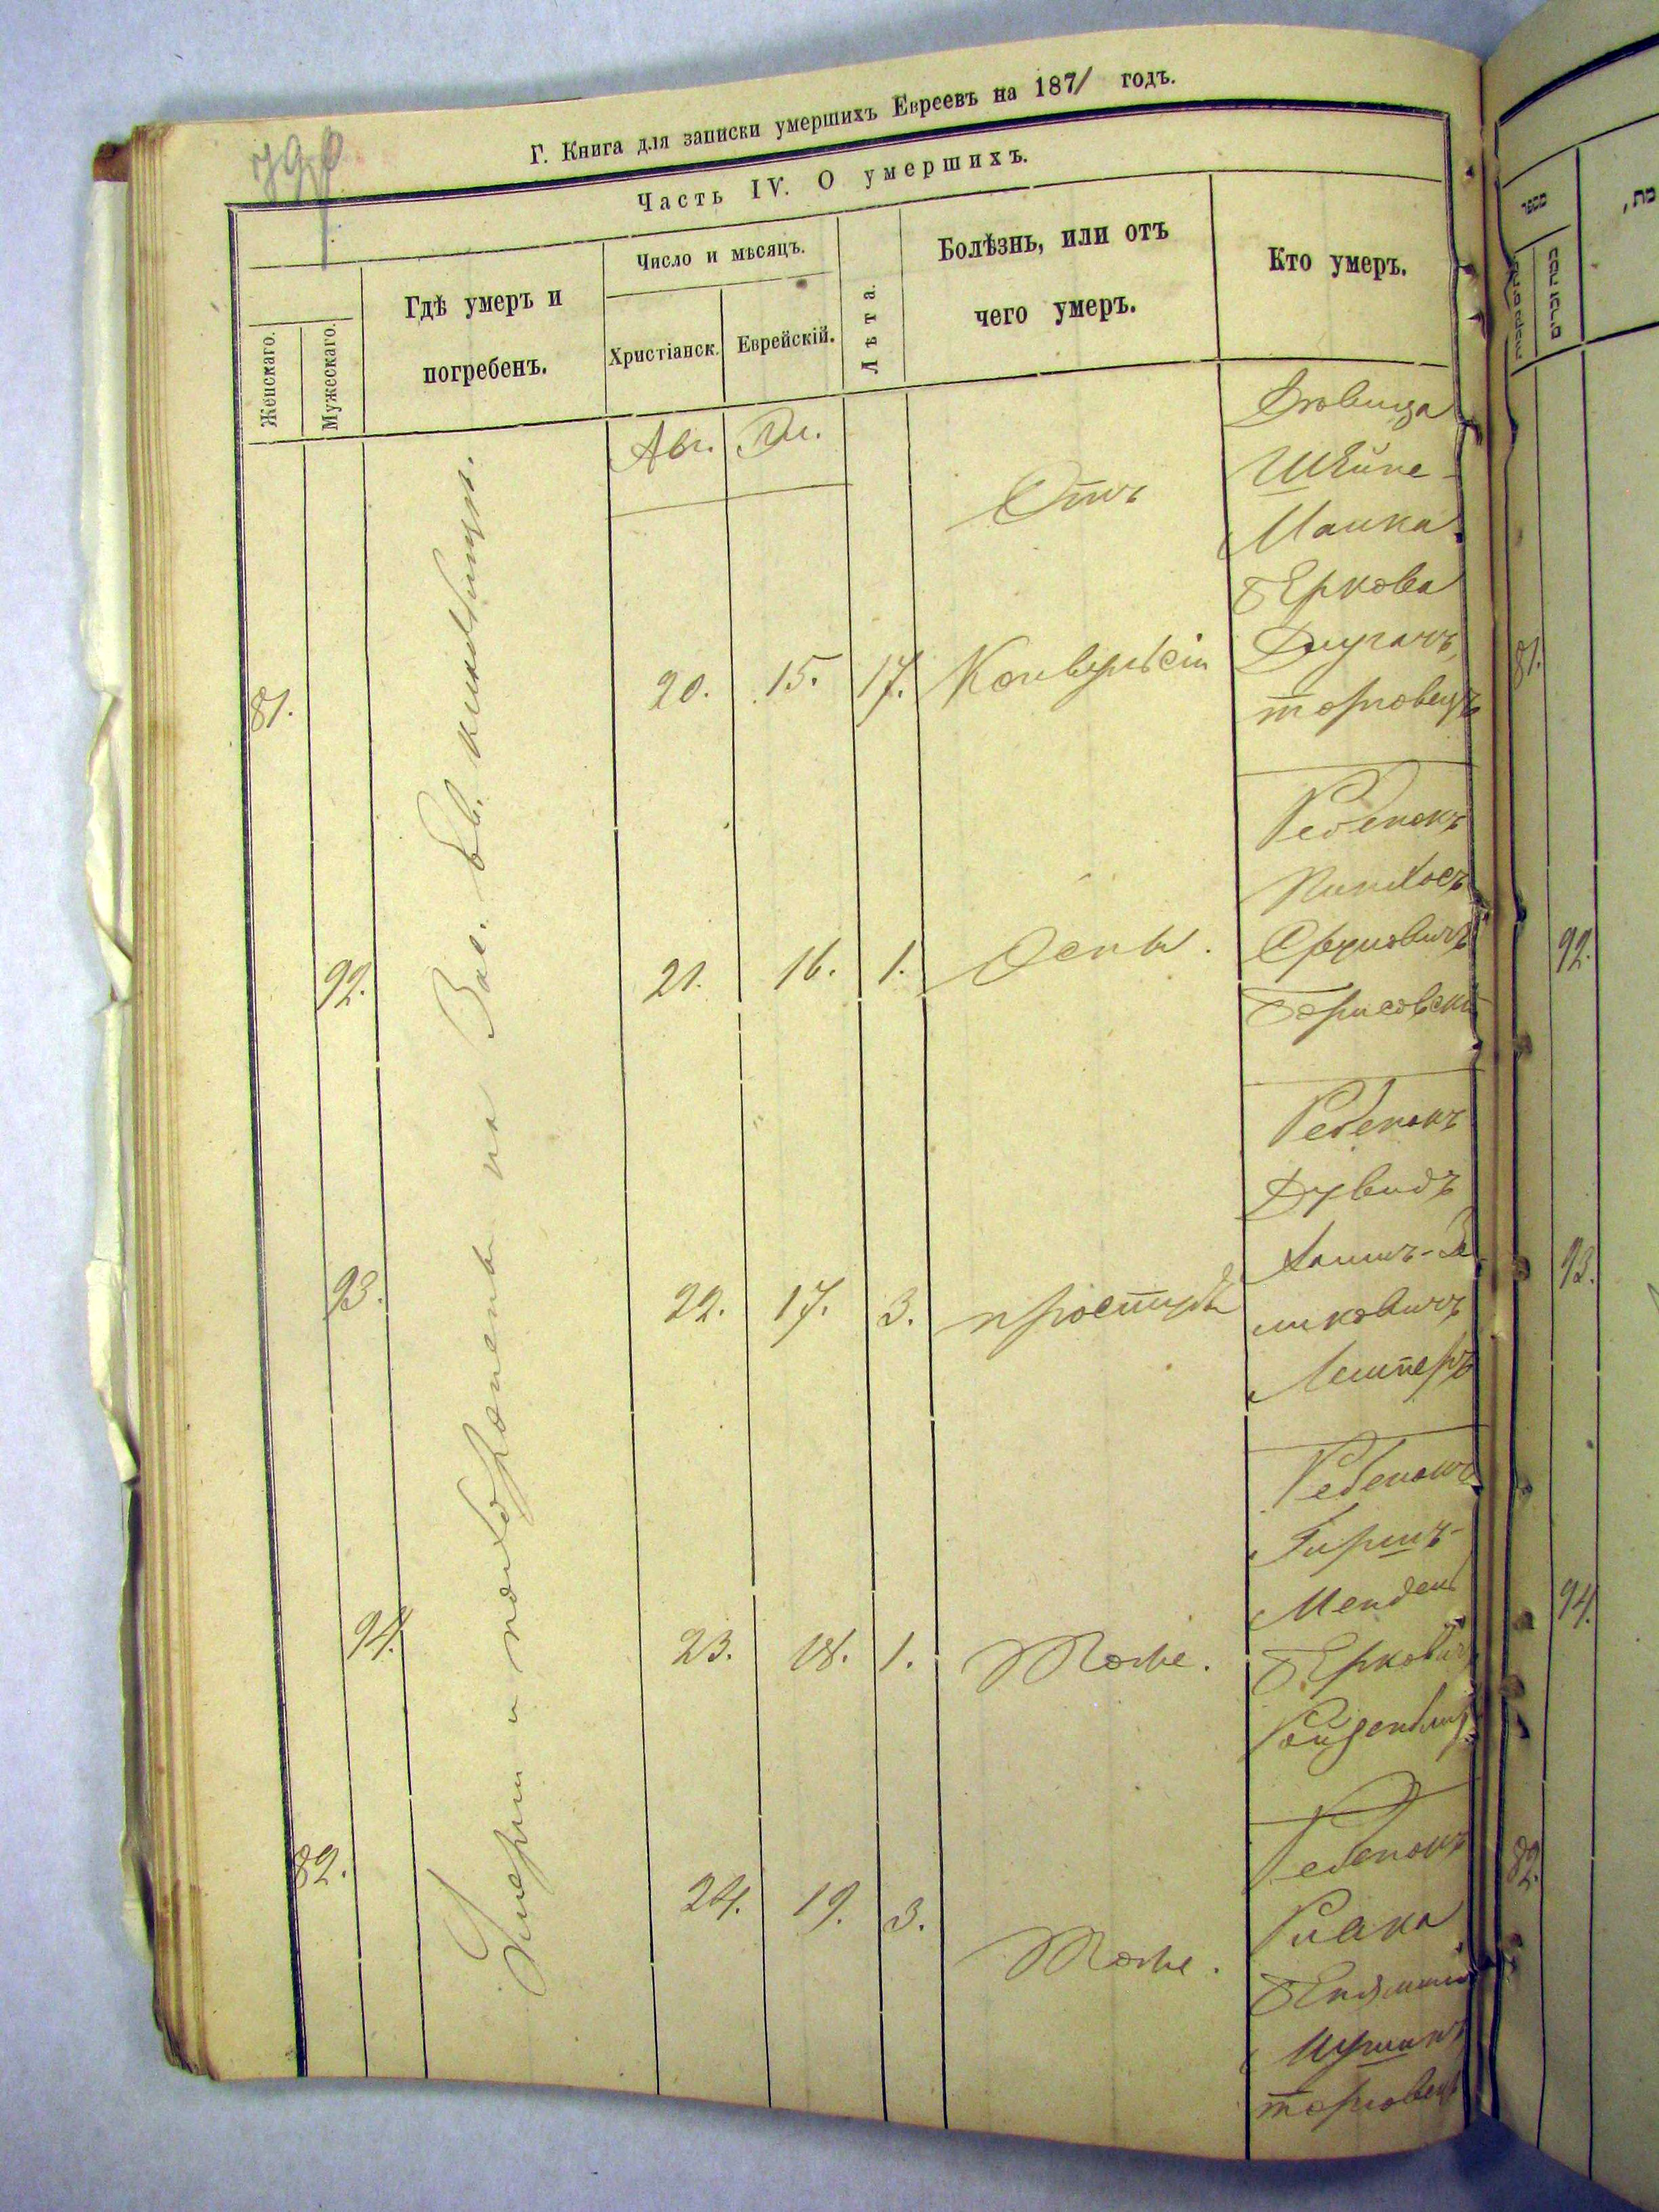 Г. Книга для записки умершихъ Евреевъ на 1871 годъ.
Часть IV. О умершихъ.
Женскаго.
Мужескаго.
Гдѣ умеръ и
погребенъ.
Число и мѣсяцъ.
Христіанск.
Еврейскій.
Лѣта.
Болѣзнь, или отъ
чего умеръ.
Кто умеръ.
Умерли и похоронены на Вас. Ев. кладбищѣ.
Авг.
Эл.
81.
20.
15.
17.
Отъ
Конвульсіи
Дѣвица
Шейне-
Малка
Беркова
Длугачъ,
торговецъ
92.
21.
16.
1.
Оспы.
Ребенокъ
Пинхосъ
Борисовскій
93.
22.
17.
3.
простуды
Ребенокъ
Дувидъ
Хаимъ-Зе
ликовичъ
94.
23.
18.
1.
Тоже.
Ребенокъ
Гиршъ-
Мендель
Берковичъ
82.
24.
19.
3.
Тоже.
Ребенокъ
Ривка
торговецъ
81.
92.
93.
94.
82.